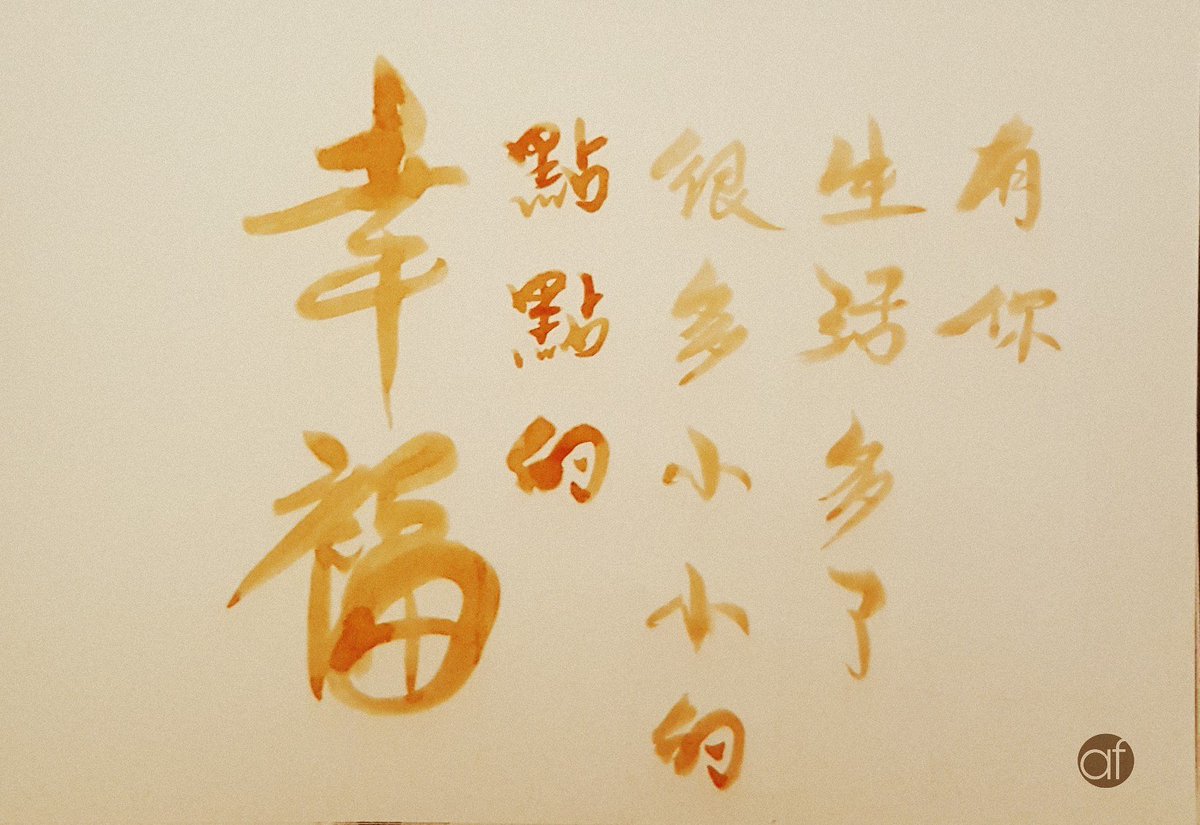 有你
生活多了
很多小小的
點點的
幸福
af